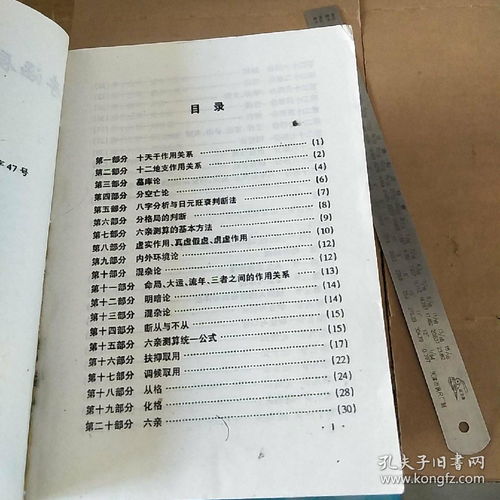 目 录
第一部分 十天干作用关系 (1)
第二部分 十二地支作用关系 (2)
第三部分 墓库论 (4)
第四部分 分空亡论 (6)
第五部分 八字分析与日元旺衰判断法 (7)
第六部分 分格局的判断 (8)
第七部分 六亲测算的基本方法 (9)
第八部分 虚实作用、真虚假虚、虎虚作用 (10)
第九部分 内外环境论 (12)
第十部分 混杂论 (12)
第十一部分 命局、大运、流年、三者之间的作用关系 (13)
第十二部分 明暗论 (14)
第十三部分 混杂论 (14)
第十四部分 断从与不从 (15)
第十五部分 六亲测算统一公式 (15)
第十六部分 扶抑取用 (17)
第十七部分 调候取用 (22)
第十八部分 从格 (24)
第十九部分 化格 (28)
第二十部分 六亲 (30)
1
字47号
孔夫子旧书网
www.kongfz.com